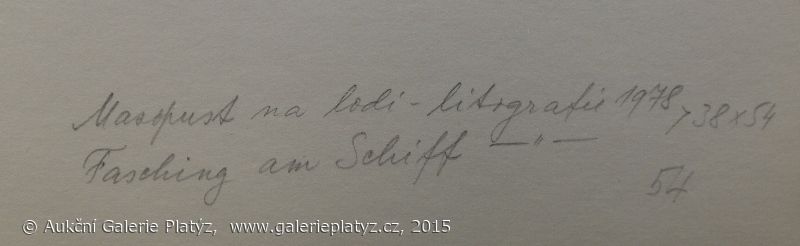 Masopust na lodi - litografie 1978 > 38x54
Fasching am Schiff —"—
54
© Aukční Galerie Platýz, www.galerieplatyz.cz, 2015